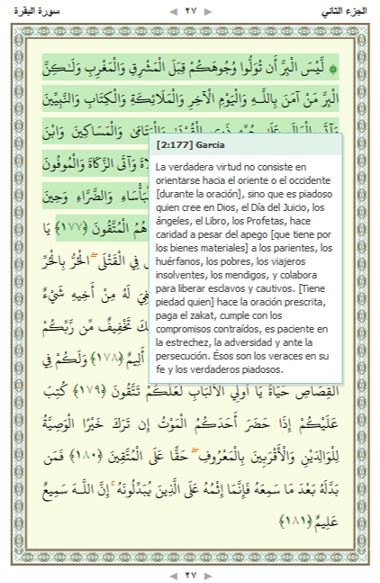 الجزء الثاني ٢٧ سورة البقرة
۞ لَّيْسَ الْبِرَّ أَن تُوَلُّوا وُجُوهَكُمْ قِبَلَ الْمَشْرِقِ وَالْمَغْرِبِ وَلَـٰكِنَّ
الْبِرَّ مَنْ آمَنَ بِاللَّـهِ وَالْيَوْمِ الْآخِرِ وَالْمَلَائِكَةِ وَالْكِتَابِ وَالنَّبِيِّينَ
وَآتَى الْمَالَ عَلَىٰ حُبِّهِ ذَوِي الْقُرْبَىٰ وَالْيَتَامَىٰ وَالْمَسَاكِينَ وَابْنَ
وَآتَى الزَّكَاةَ وَالْمُوفُونَ
وَالضَّرَّاءِ وَحِينَ
هُمُ الْمُتَّقُونَ ﴿١٧٧﴾ يَا
فِي الْقَتْلَى ۖ الْحُرُّ بِالْحُرِّ
لَهُ مِنْ أَخِيهِ شَيْءٌ
تَخْفِيفٌ مِّن رَّبِّكُمْ
أَلِيمٌ ﴿١٧٨﴾ وَلَكُمْ فِي
[2:177] Garcia
La verdadera virtud no consiste en
orientarse hacia el oriente o el occidente
[durante la oración], sino que es piadoso
quien cree en Dios, el Día del Juicio, los
ángeles, el Libro, los Profetas, hace
caridad a pesar del apego [que tiene por
los bienes materiales] a los parientes, los
huérfanos, los pobres, los viajeros
insolventes, los mendigos, y colabora
para liberar esclavos y cautivos. [Tiene
piedad quien] hace la oración prescrita,
paga el zakat, cumple con los
compromisos contraídos, es paciente en
la estrechez, la adversidad y ante la
persecución. Ésos son los veraces en su
fe y los verdaderos piadosos.
الْقِصَاصِ حَيَاةٌ يَا أُولِي الْأَلْبَابِ لَعَلَّكُمْ تَتَّقُونَ ﴿١٧٩﴾ كُتِبَ
عَلَيْكُمْ إِذَا حَضَرَ أَحَدَكُمُ الْمَوْتُ إِن تَرَكَ خَيْرًا الْوَصِيَّةُ
لِلْوَالِدَيْنِ وَالْأَقْرَبِينَ بِالْمَعْرُوفِ ۖ حَقًّا عَلَى الْمُتَّقِينَ ﴿١٨٠﴾ فَمَن
بَدَّلَهُ بَعْدَ مَا سَمِعَهُ فَإِنَّمَا إِثْمُهُ عَلَى الَّذِينَ يُبَدِّلُونَهُ ۚ إِنَّ اللَّـهَ سَمِيعٌ
عَلِيمٌ ﴿١٨١﴾
٢٧